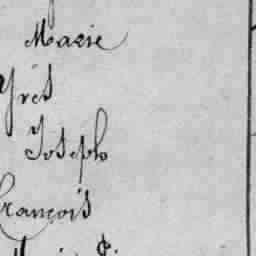 Marie
Yves
Joseph
François